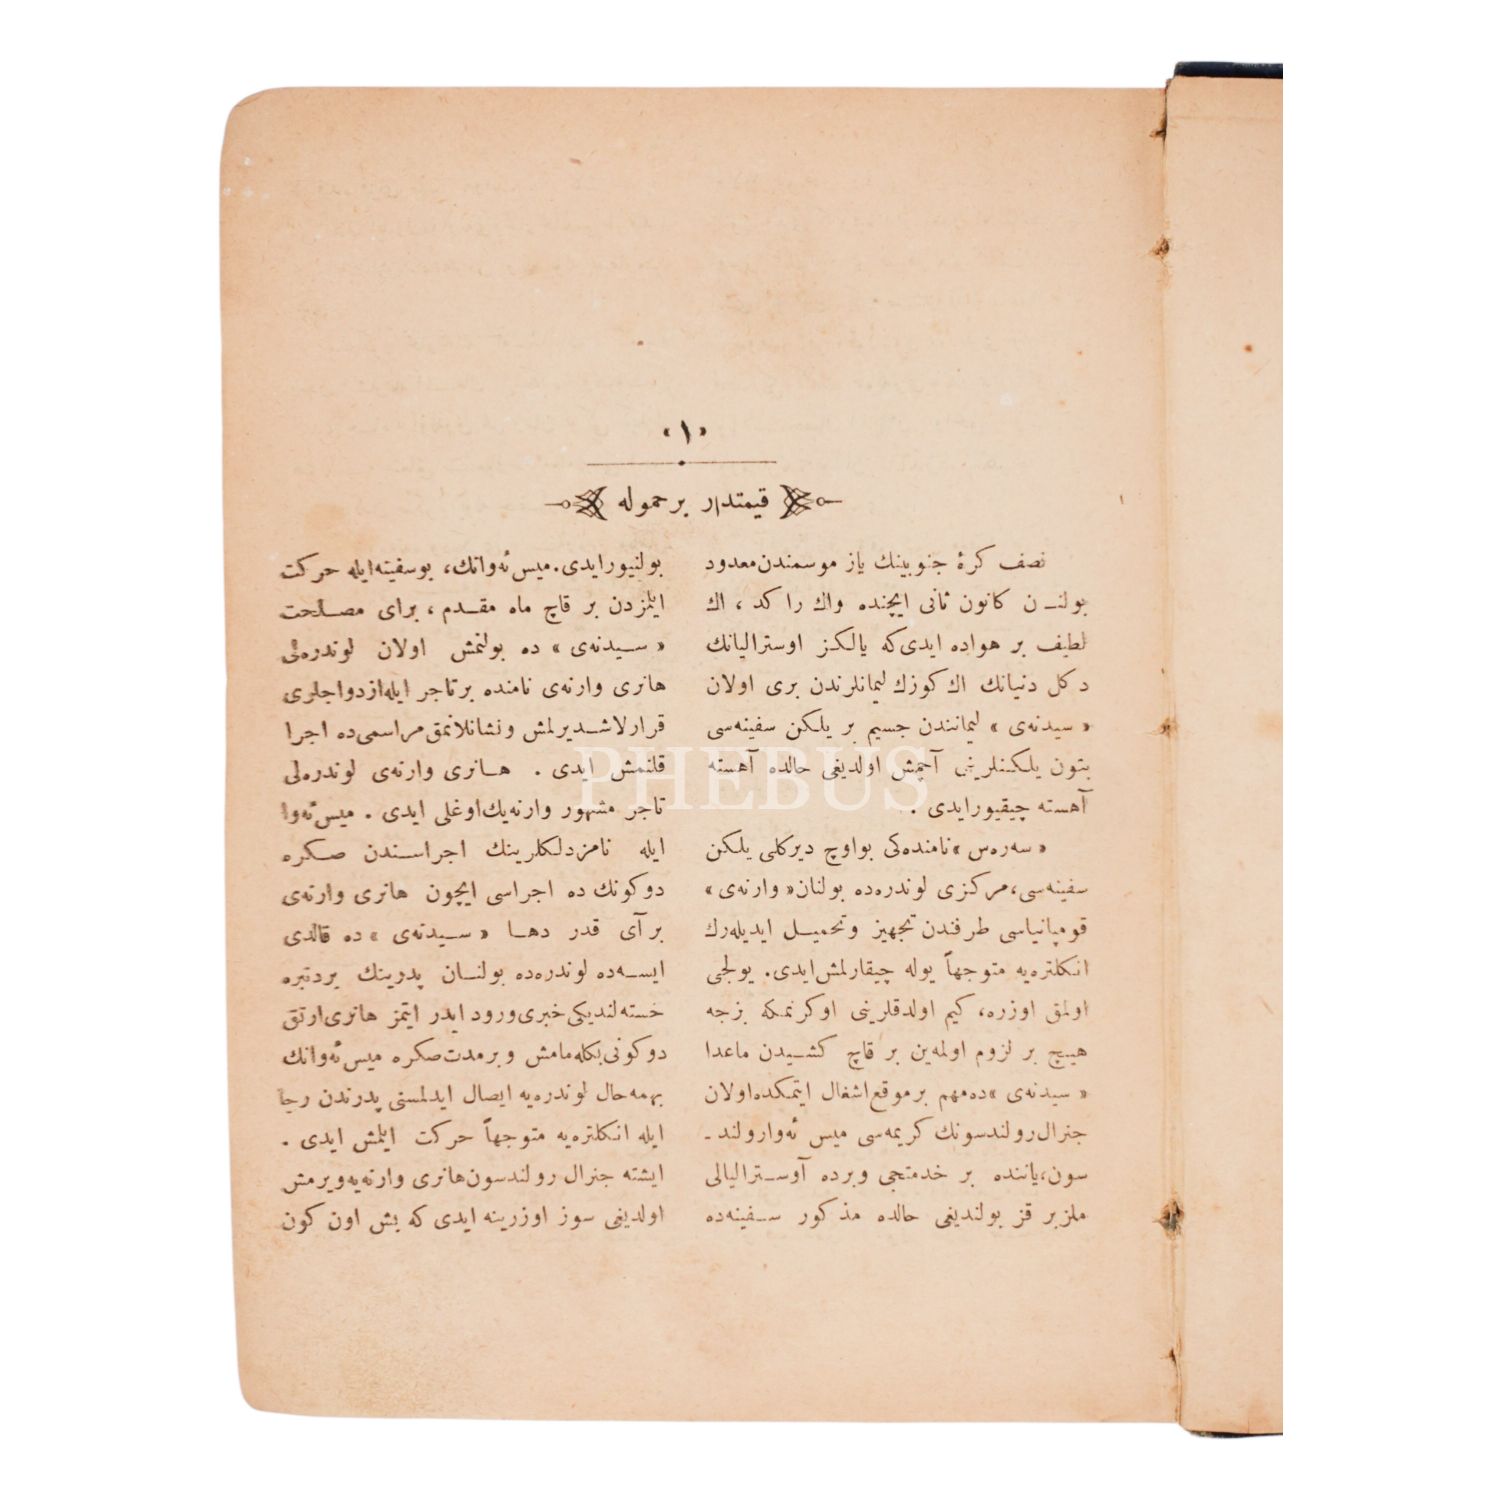 «١»
قیمتدار بر حموله
نصف کرۀ جنوبینك یاز موسمندن معدود
بولنـن کانون ثانی ایچنده واك راکد ، اك
لطیف بر هواده ایدی‌که یالکز اوسترالیانك
دکل دنیانك اك کوزل لیمانلرندن بری اولان
« سیدنه‌ی » لیمانندن جسیم بر یلکن سفینه‌سی
بتون یلکنلرینی آچمش اولدیغی حالده آهسته
آهسته چیقیور ایدی .
« سه‌ره‌س » نامنده‌کی بو اوچ دیرکلی یلکن
سفینه‌سی، مرکزی لوندره‌ده بولنان « وارنه‌ی »
قومپانیاسی طرفندن تجهیز و تحمیـل ایدیله‌رك
انکلتره‌یه متوجهاً یوله چیقارلمش ایدی. یولجی
اولمق اوزره، کیم اولدقلرینی اوکرنمکه بزجه
هییج بر لزوم اولمه‌ین بر قاچ کشـیدن ماعدا
« سیدنه‌ی » ده مهم بر موقع اشغال ایتمکده اولان
جنرال رولندسونك کریمه‌سی میس ئه‌وا رولند ـ
سون، یاننده بر خدمتجی و برده آوسـترالیالی
ملز بر قز بولندیغی حالده مذکور سـفینه‌ده
بولنیور ایدی. میس ئه‌وانك، بو سفینه ایله حرکت
ایلمزدن بر قاچ ماه مقـدم ، برای مصـلحت
« سـیدنه‌ی » ده بولنمش اولان لوندره‌لی
هانری وارنه‌ی نامنده بر تاجر ایله ازدواجلری
قرارلاشـدیرلمش و نشانلانمق مراسمی ده اجرا
قلنمش ایدی . هـانری وارنه‌ی لوندره‌لی
تاجر مشهور وارنه‌یك اوغلی ایدی . میس ئه‌وا
ایله نامزدلکلرینك اجراسـندن صـکره
دوکونك ده اجراسی ایچون هانری وارنه‌ی
بر آی قدر دهـا « سـیدنه‌ی » ده قالدی
ایسـه‌ده لوندره‌ده بولنـان پدرینك بردنبره
خسته‌لندیکی خبری ورود ایدر ایتمز هانری ارتق
دوکونی بکله‌مامش و بر مدت صکره میس ئه‌وانك
بهمه‌حال لوندره‌یه ایصال ایدلمسنی پدرندن رجا
ایله انکلتره‌یه متوجهاً حرکت ایلمش ایدی .
ایشته جنرال رولندسون هانری وارنه‌یه ویرمش
اولدیغی سوز اوزرینه ایدی که بش اون کون
PHEBUS